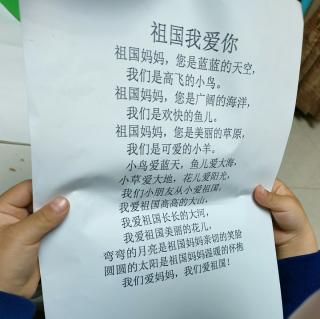 祖国我爱你
祖国妈妈，您是蓝蓝的天空，
我们是高飞的小鸟。
祖国妈妈，您是广阔的海洋，
我们是欢快的鱼儿。
祖国妈妈，您是美丽的草原，
我们是可爱的小羊。
小鸟爱蓝天，鱼儿爱大海，
小草爱大地，花儿爱阳光，
我们小朋友从小爱祖国。
我爱祖国高高的大山，
我爱祖国长长的大河，
我爱祖国美丽的花儿，
弯弯的月亮是祖国妈妈亲切的笑脸
圆圆的太阳是祖国妈妈温暖的怀抱
我们爱妈妈，我们爱祖国！